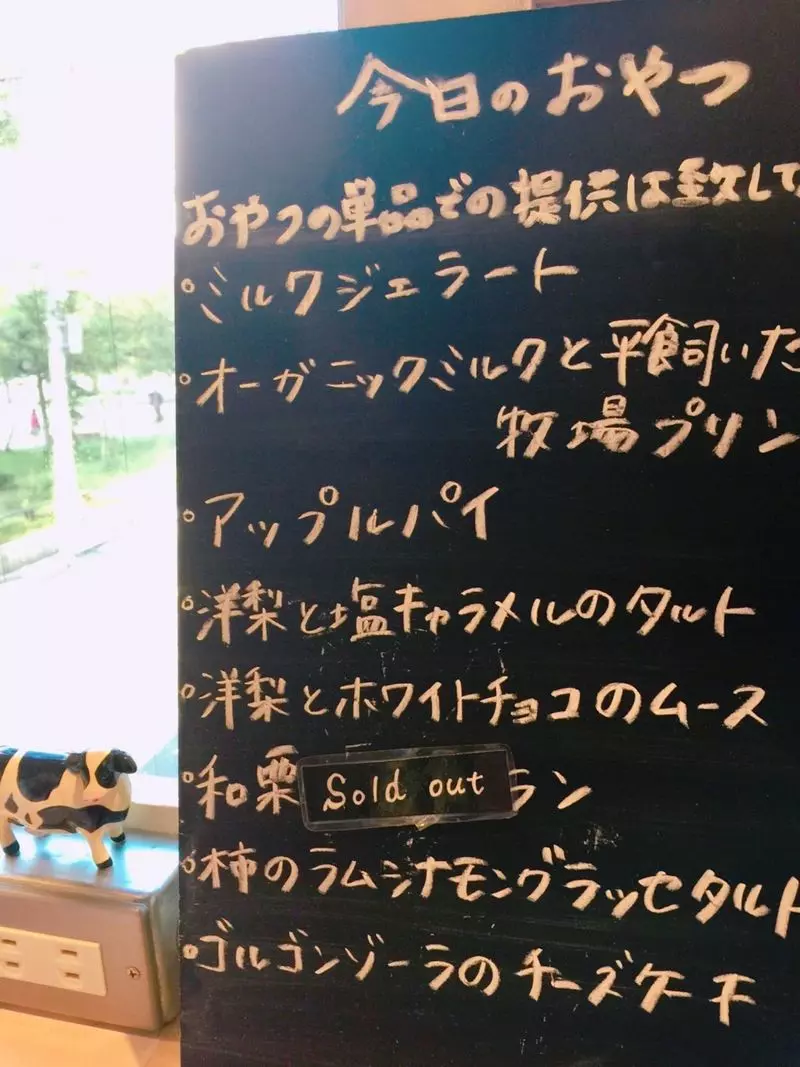 今日のおやつ
おやつの単品での提供は致して
・ミルクジェラート
・オーガニックミルクと平飼いた
牧場プリン
・アップルパイ
・洋梨と塩キャラメルのタルト
・洋梨とホワイトチョコのムース
・和栗 Sold out ラン
・柿のラムシナモングラッセタルト
・ゴルゴンゾーラのチーズケーキ